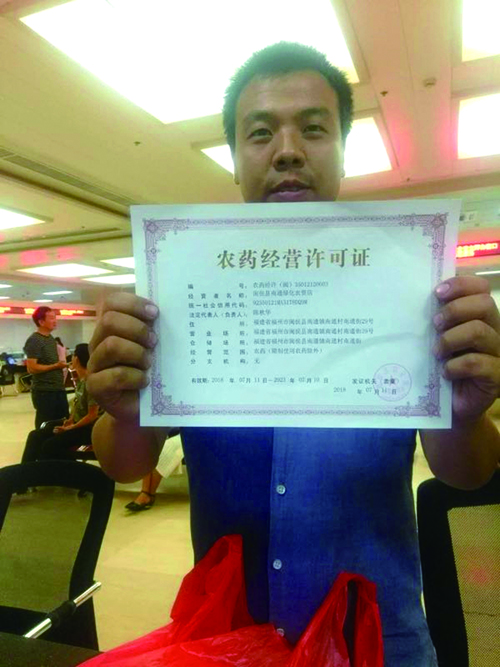 农药经营许可证
编 号: 农药经许(闽)35012120003
经 营 者 名 称: 闽侯县南通绿住农资店
统一社会信用代码:
法定代表人(负责人): 陈秋华
住 所: 福建省福州市闽侯县南通镇南通村南通街29号
营 业 场 所: 福建省福州市闽侯县南通镇南通村南通街29号
仓 储 场 所: 福建省福州市闽侯县南通镇南通村南通街
经 营 范 围: 农药(限制使用农药除外)
分 支 机 构: 无
有效期: 2018 年 07月 11日-2023 年 07月 10 日
发证机关
2018 年 07月 11日